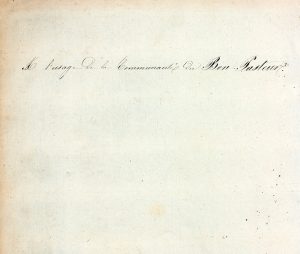 A l'usage De la Communauté du Bon Pasteur.